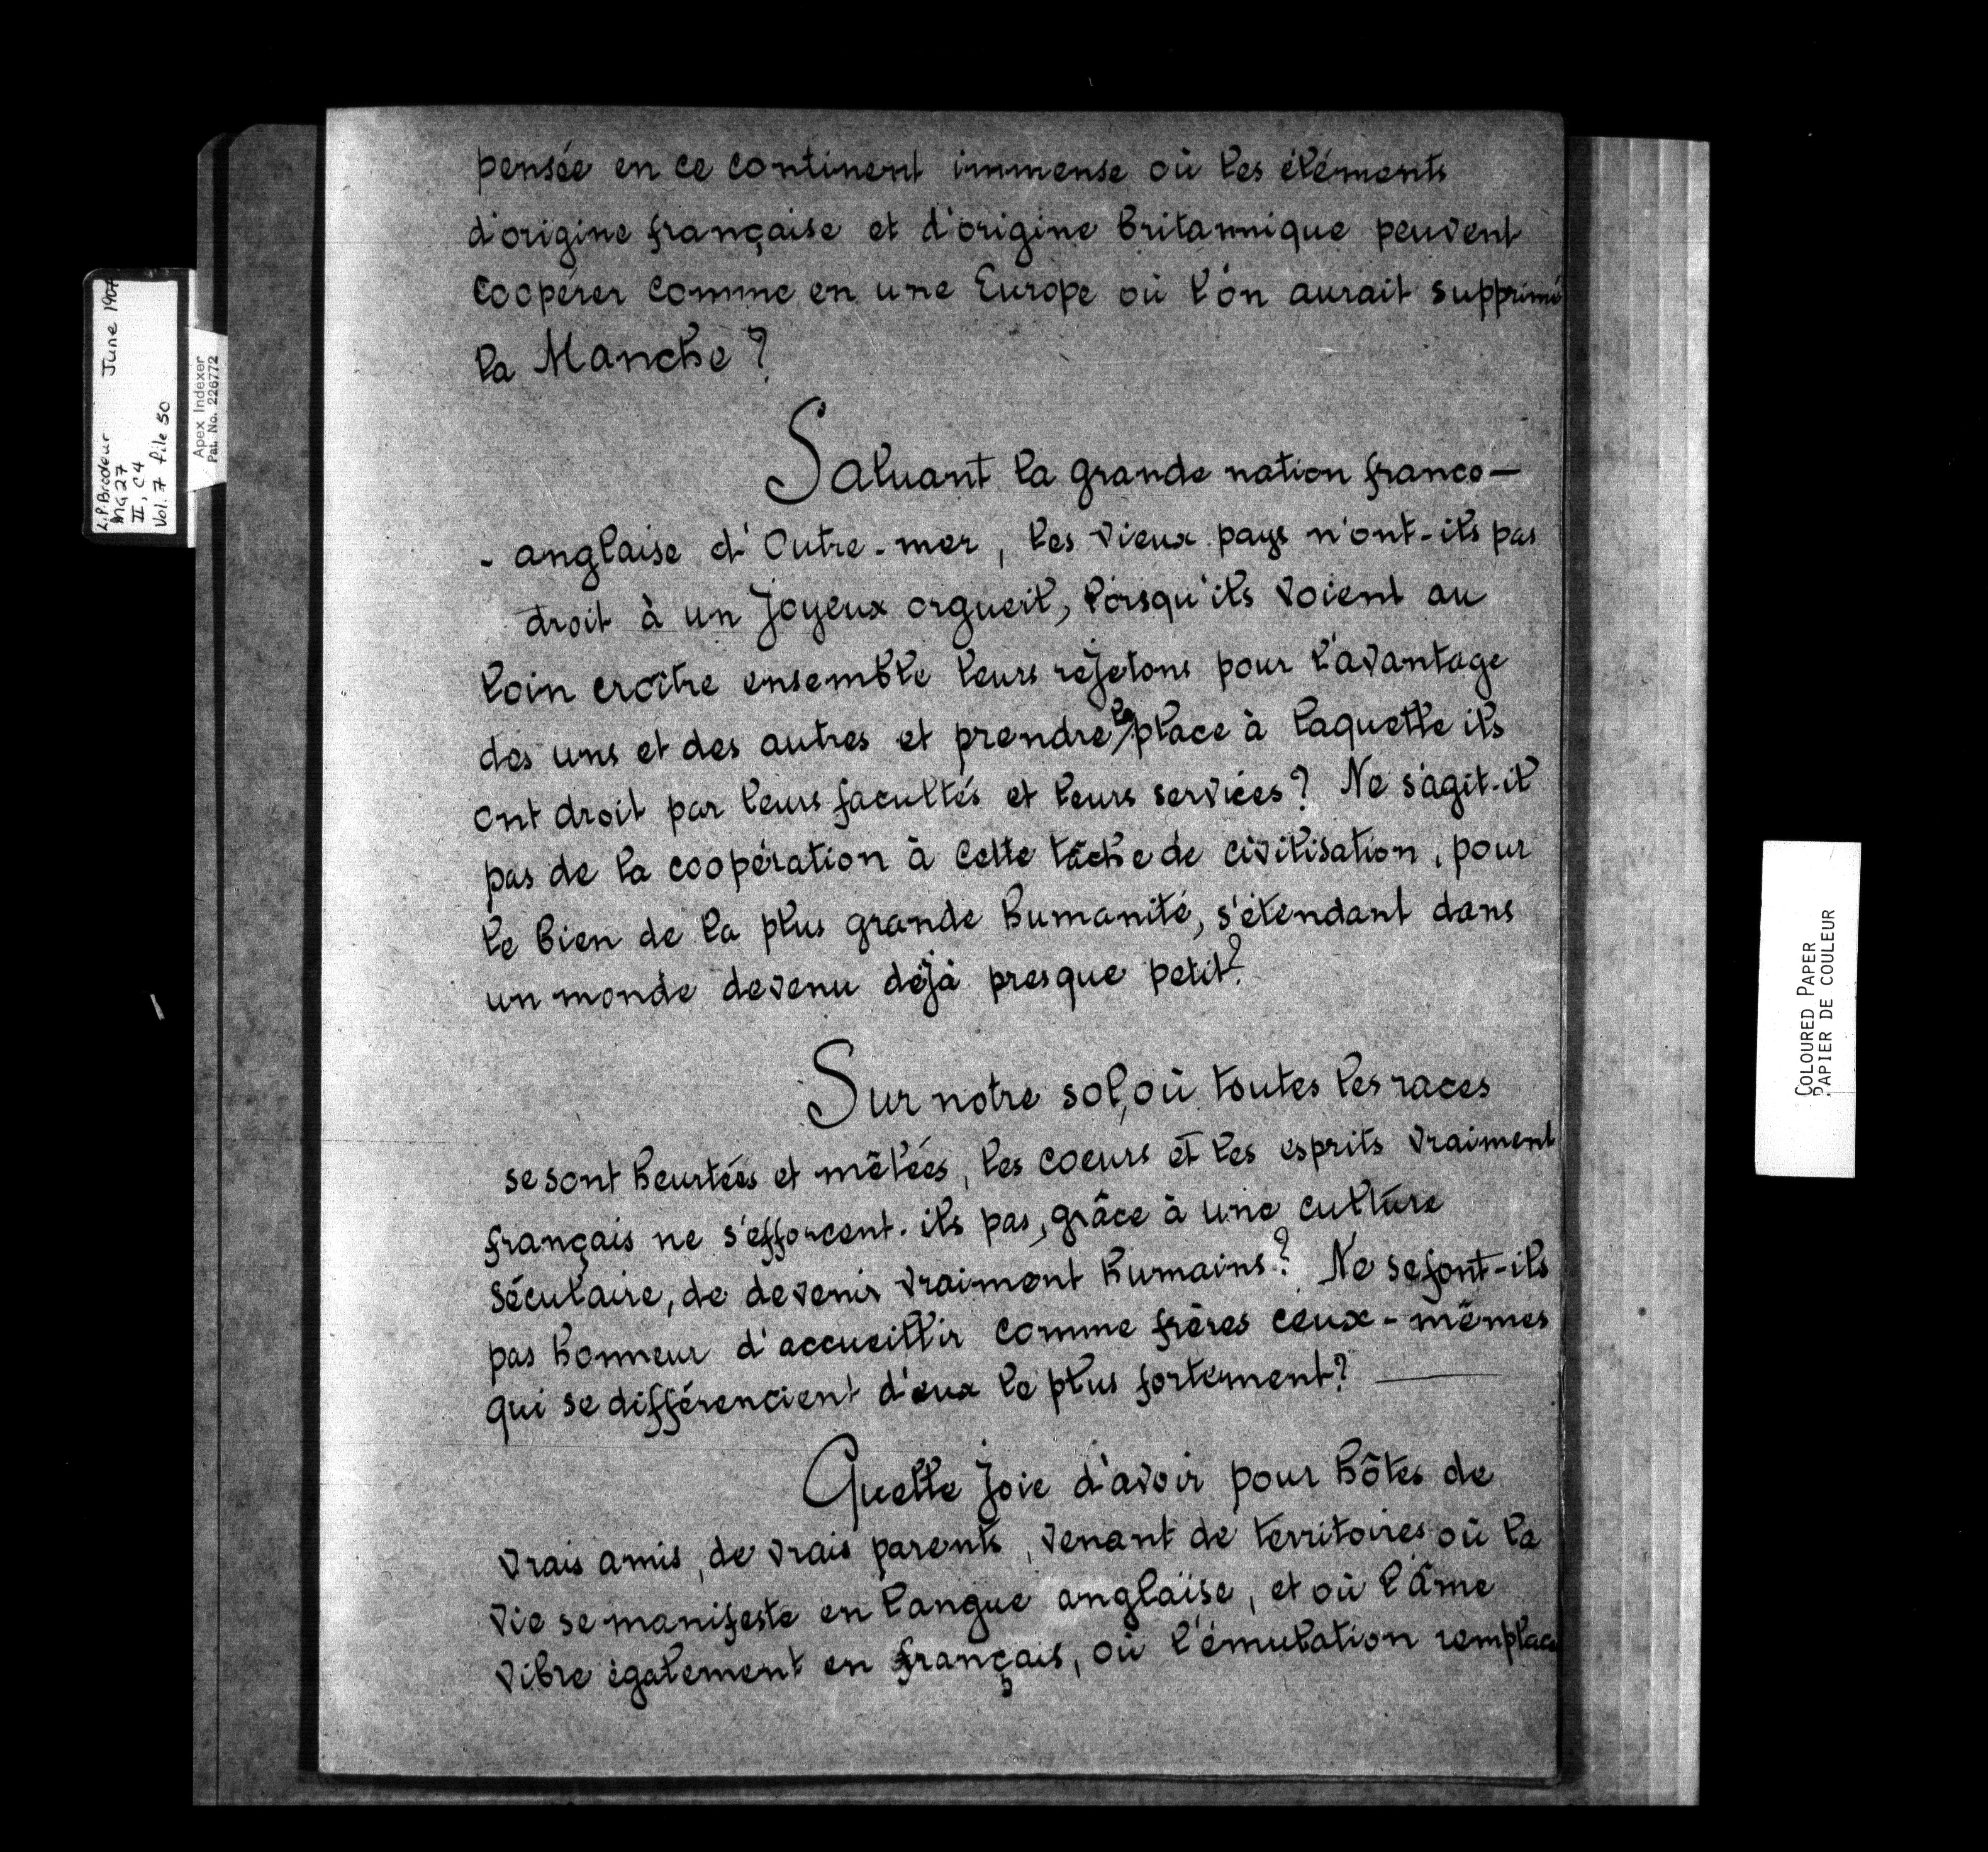 pensée en ce continent immense où les éléments
d'origine française et d'origine britannique peuvent
coopérer comme en une Europe où l'on aurait supprimé
la Manche ?
Saluant la grande nation franco-
- anglaise d'Outre-mer, les vieux pays n'ont-ils pas
droit à un joyeux orgueil, lorsqu'ils voient au
loin croître ensemble leurs rejetons pour l'avantage
des uns et des autres et prendre la place à laquelle ils
ont droit par leurs facultés et leurs services ? Ne s'agit-il
pas de la coopération à cette tâche de civilisation, pour
le bien de la plus grande humanité, s'étendant dans
un monde devenu déjà presque petit ?
Sur notre sol, où toutes les races
se sont heurtées et mêlées, les coeurs et les esprits vraiment
français ne s'efforcent-ils pas, grâce à une culture
séculaire, de devenir vraiment humains ? Ne se font-ils
pas honneur d'accueillir comme frères ceux-mêmes
qui se différencient d'eux le plus fortement ? —
Quelle joie d'avoir pour hôtes de
vrais amis, de vrais parents, venant de territoires où la
vie se manifeste en langue anglaise, et où l'âme
vibre également en français, où l'émulation remplace
L.P. Brodeur June 1907
MG 27
II, C4
Vol. 7 file 50
Apex Indexer
Pat. No. 226772
COLOURED PAPER
PAPIER DE COULEUR